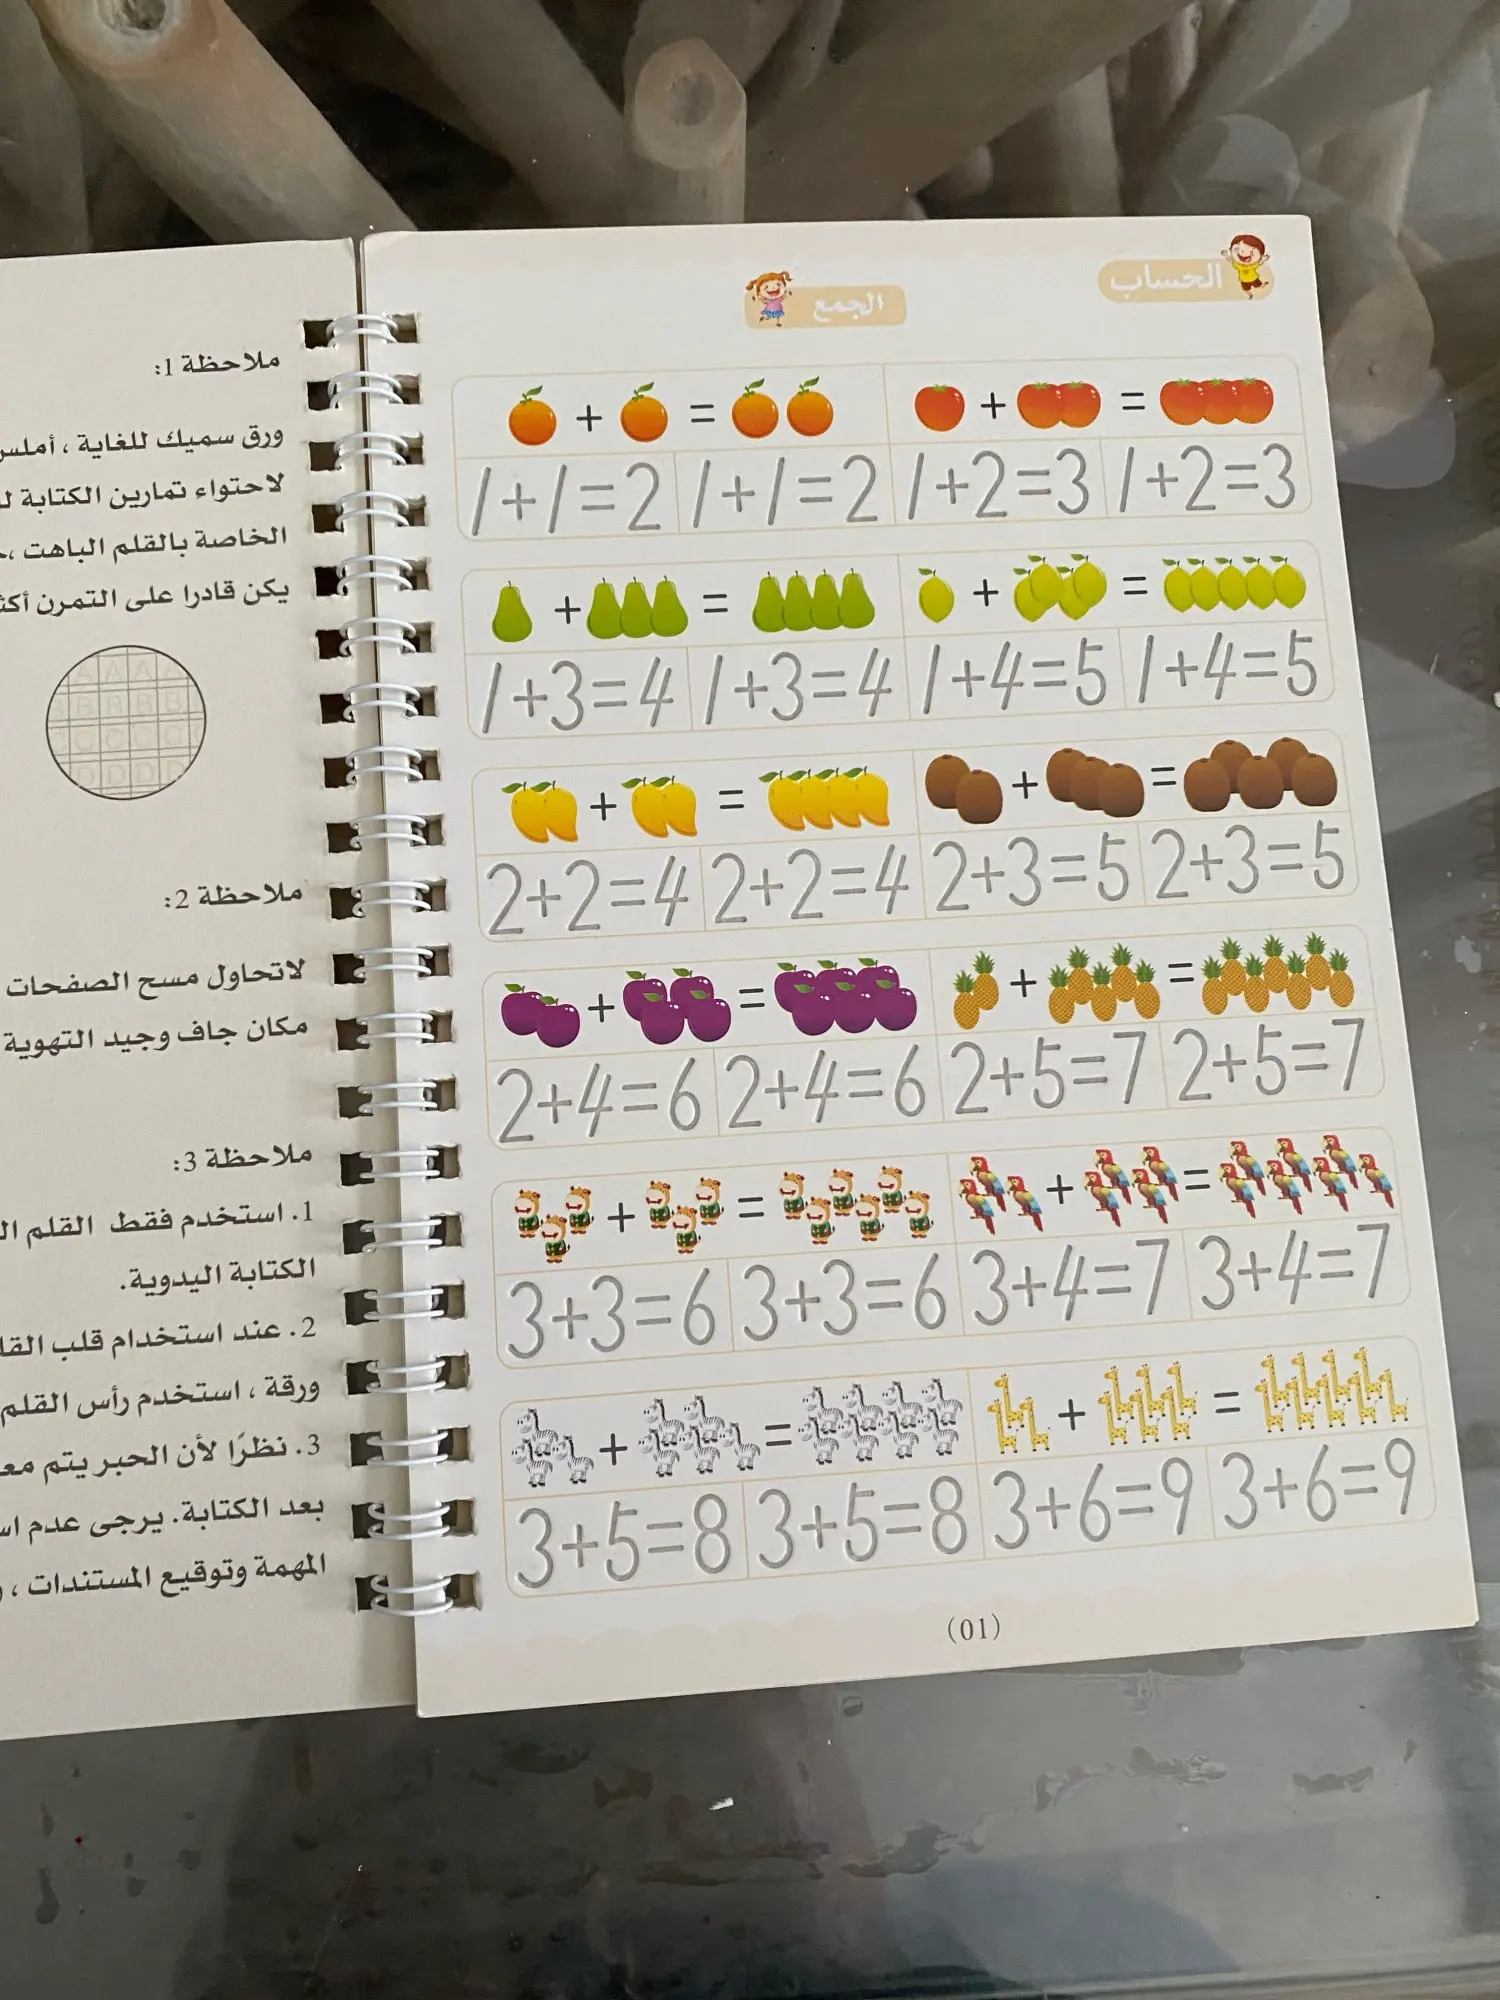 الحساب
الجمع
+ = + =
1+1=2 1+1=2 1+2=3 1+2=3
+ = + =
1+3=4 1+3=4 1+4=5 1+4=5
+ = + =
2+2=4 2+2=4 2+3=5 2+3=5
+ = + =
2+4=6 2+4=6 2+5=7 2+5=7
+ = + =
3+3=6 3+3=6 3+4=7 3+4=7
+ = + =
3+5=8 3+5=8 3+6=9 3+6=9
(01)
ملاحظة 1:
ورق سميك للغاية ، أملس
لاحتواء تمارين الكتابة
الخاصة بالقلم الباهت ،
يكن قادرا على التمرن
A A A
B B B B B
C C C C
D D D D
ملاحظة 2:
لاتحاول مسح الصفحات
مكان جاف وجيد التهوية
ملاحظة 3:
1. استخدم فقط القلم
الكتابة اليدوية.
2. عند استخدام قلب
ورقة ، استخدم رأس القلم
3. نظرًا لأن الحبر يتم
بعد الكتابة. يرجى عدم
المهمة وتوقيع المستندات ،